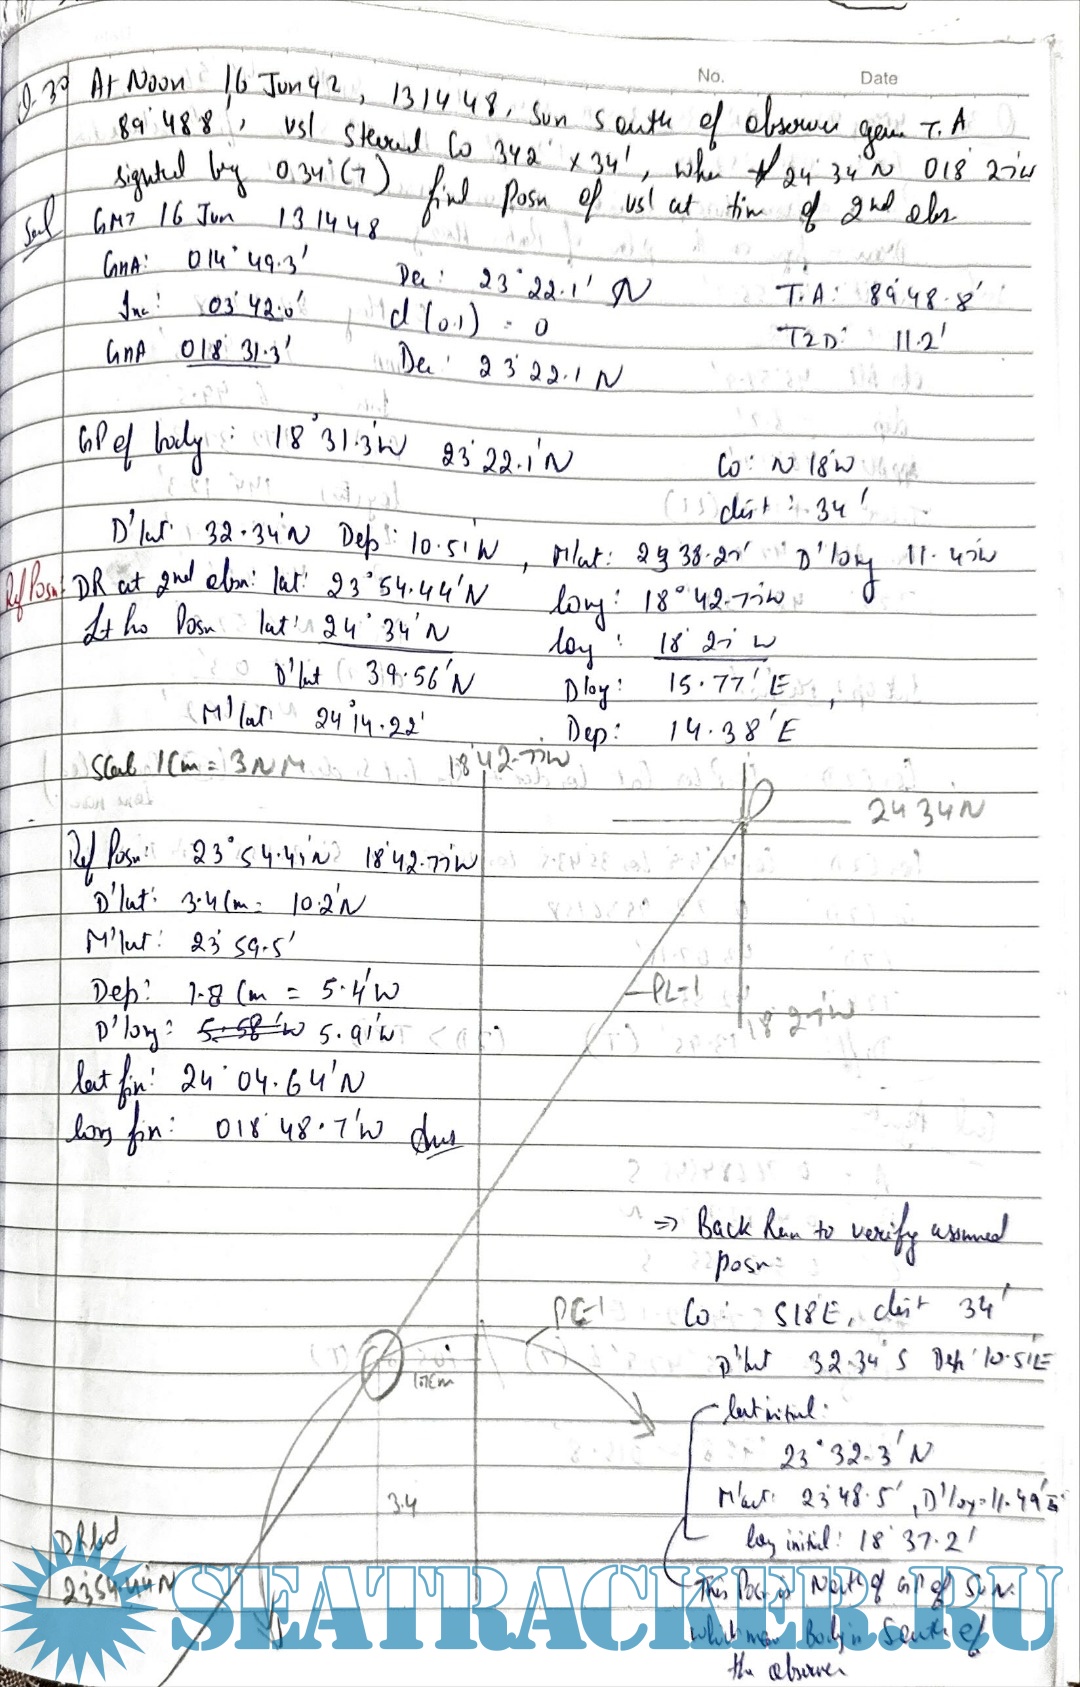 No. Date
Q.30 At Noon 16 Jun 92, 131448, Sun South of observer gave T.A
89°48.8', vsl steered Co 342° x 34', when 24°34'N 018°27'W
sighted brg 034°(T) find Posn of vsl at time of 2nd obs.
Sol GMT 16 Jun 131448
GHA: 014° 49.3' Dec: 23° 22.1' N T.A: 89°48.8'
Inc: 03° 42.0' d (0.1) = 0 TZD: 11.2'
GHA 018° 31.3' Dec: 23° 22.1 N
GP of body: 18° 31.3'W 23° 22.1'N Co: N 18 W
dist: 34'
D'lat: 32.34'N Dep: 10.51'W, M'lat: 23 38.27' D'long 11.47'W
Ref Posn: DR at 2nd obsn: lat: 23° 54.44'N long: 18° 42.77'W
Lt ho Posn lat: 24° 34'N long: 18° 27' W
D'lat 39.56'N Dlong: 15.77' E
M'lat: 24° 14.22' Dep: 14.38' E
Scale 1cm = 3NM 18°42.77'W
24 34'N
Ref Posn: 23° 54.44'N 18°42.77'W
D'lat: 3.4cm = 10.2'N
M'lat: 23° 59.5'
Dep: 1.8 cm = 5.4'W PL-1
D'long: 5.58'W 5.91'W 18°27'W
lat fin: 24° 04.64'N
long fin: 018° 48.7'W Ans
⇒ Back Run to verify assumed
posn
PC-1 Co: S18E, dist 34'
1.8cm D'lat 32.34' S Dep 10.51'E
lat initial:
23° 32.3' N
3.4 M'lat: 23° 48.5', D'long = 11.49'E
DR lat long initial: 18° 37.2'
23°54.44'N This Posn is North of GP of Sun
which mean Body is South of
the observer
SEATRACKER.RU